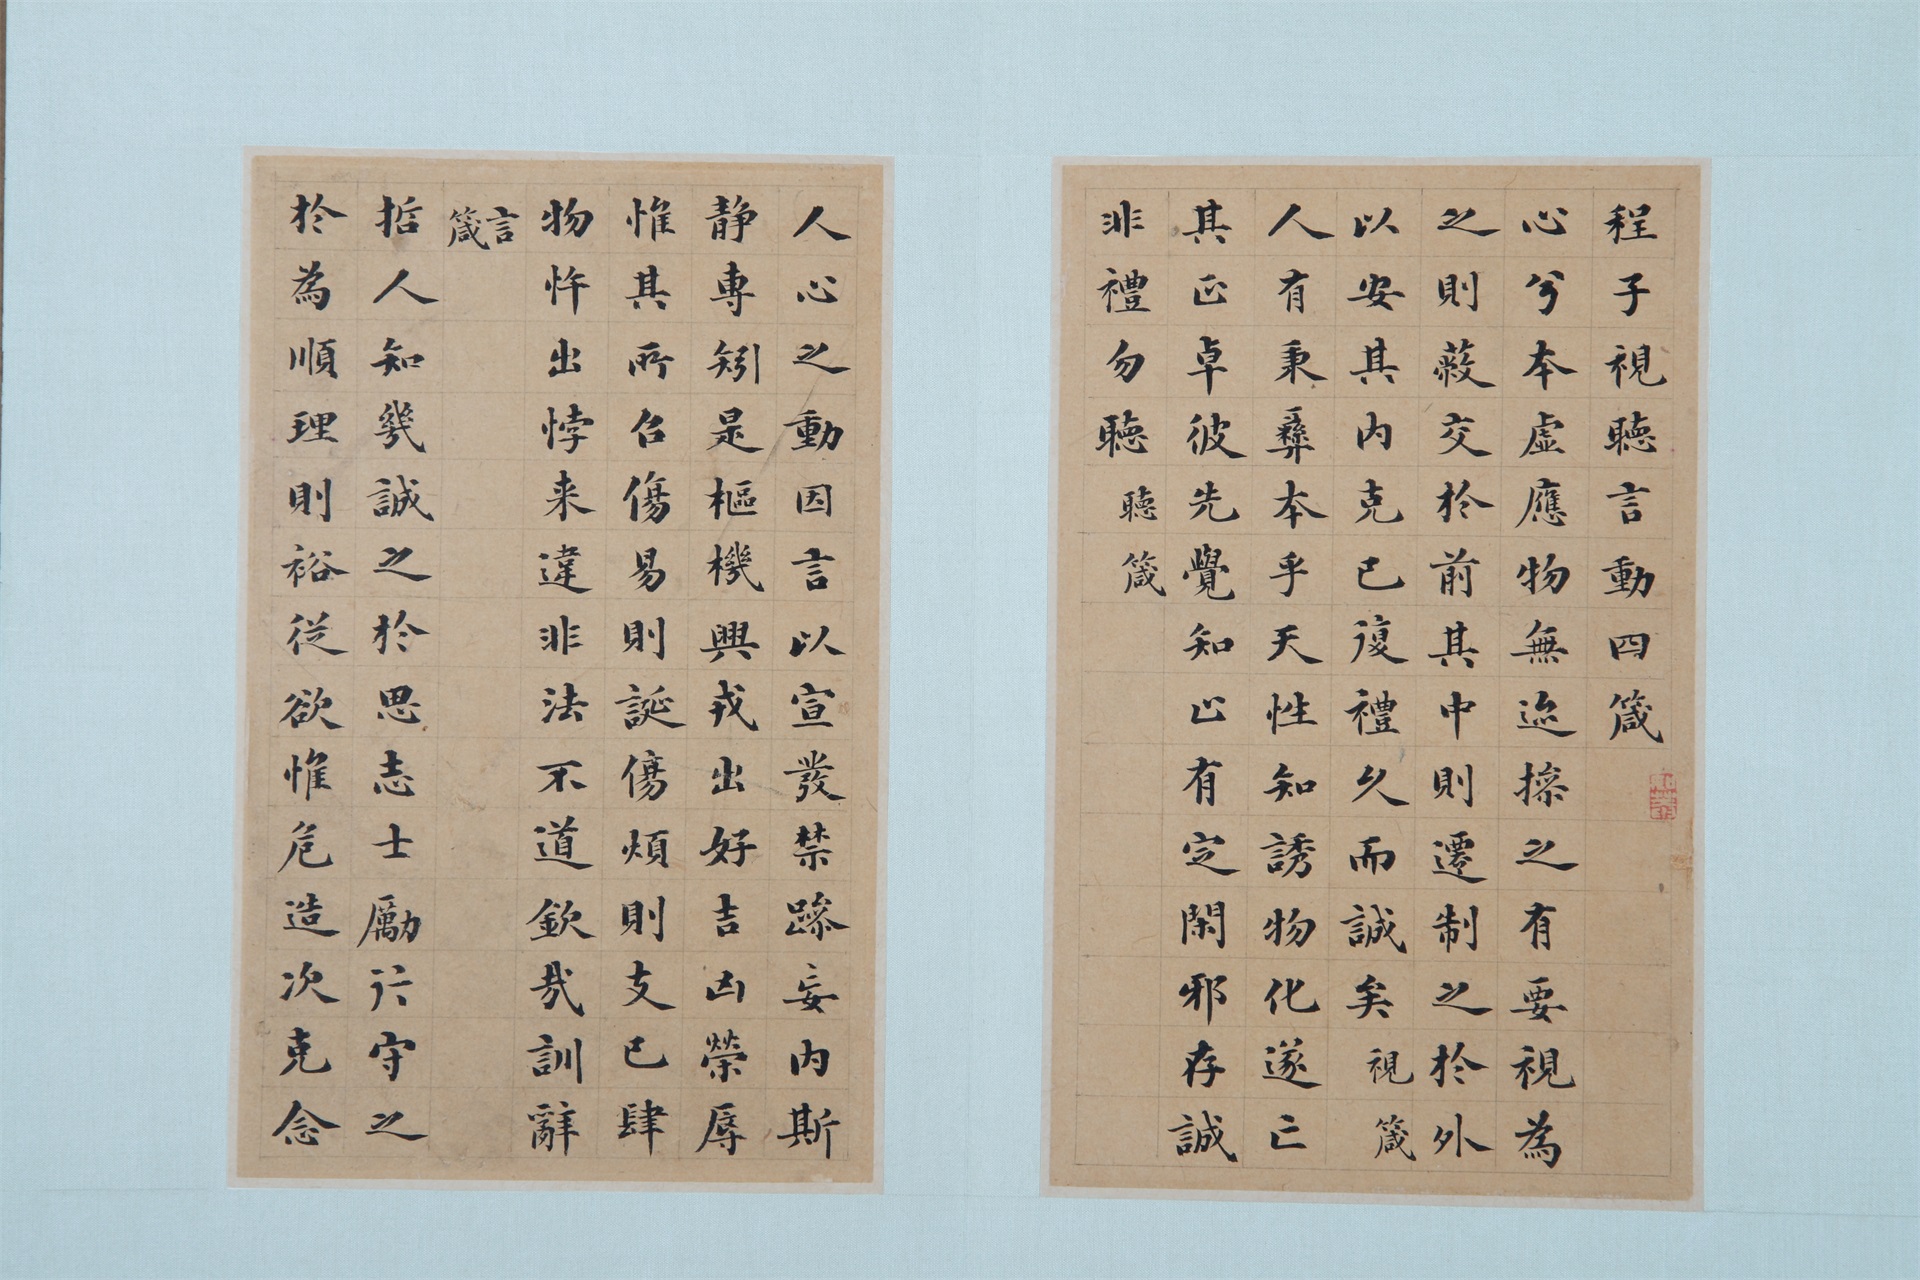 程子視聽言動四箴
心兮本虛應物無迹操之有要視為
之則蔽交於前其中則遷制之於外
以安其內克己復禮久而誠矣視箴
人有秉彝本乎天性知誘物化遂亡
其正卓彼先覺知止有定閑邪存誠
非禮勿聽聽箴
人心之動因言以宣發禁躁妄內斯
静專矧是樞機興戎出好吉凶榮辱
惟其所召傷易則誕傷煩則支己肆
物忤出悖来違非法不道欽哉訓辭
言箴
哲人知幾誠之於思志士勵行守之
於為順理則裕從欲惟危造次克念